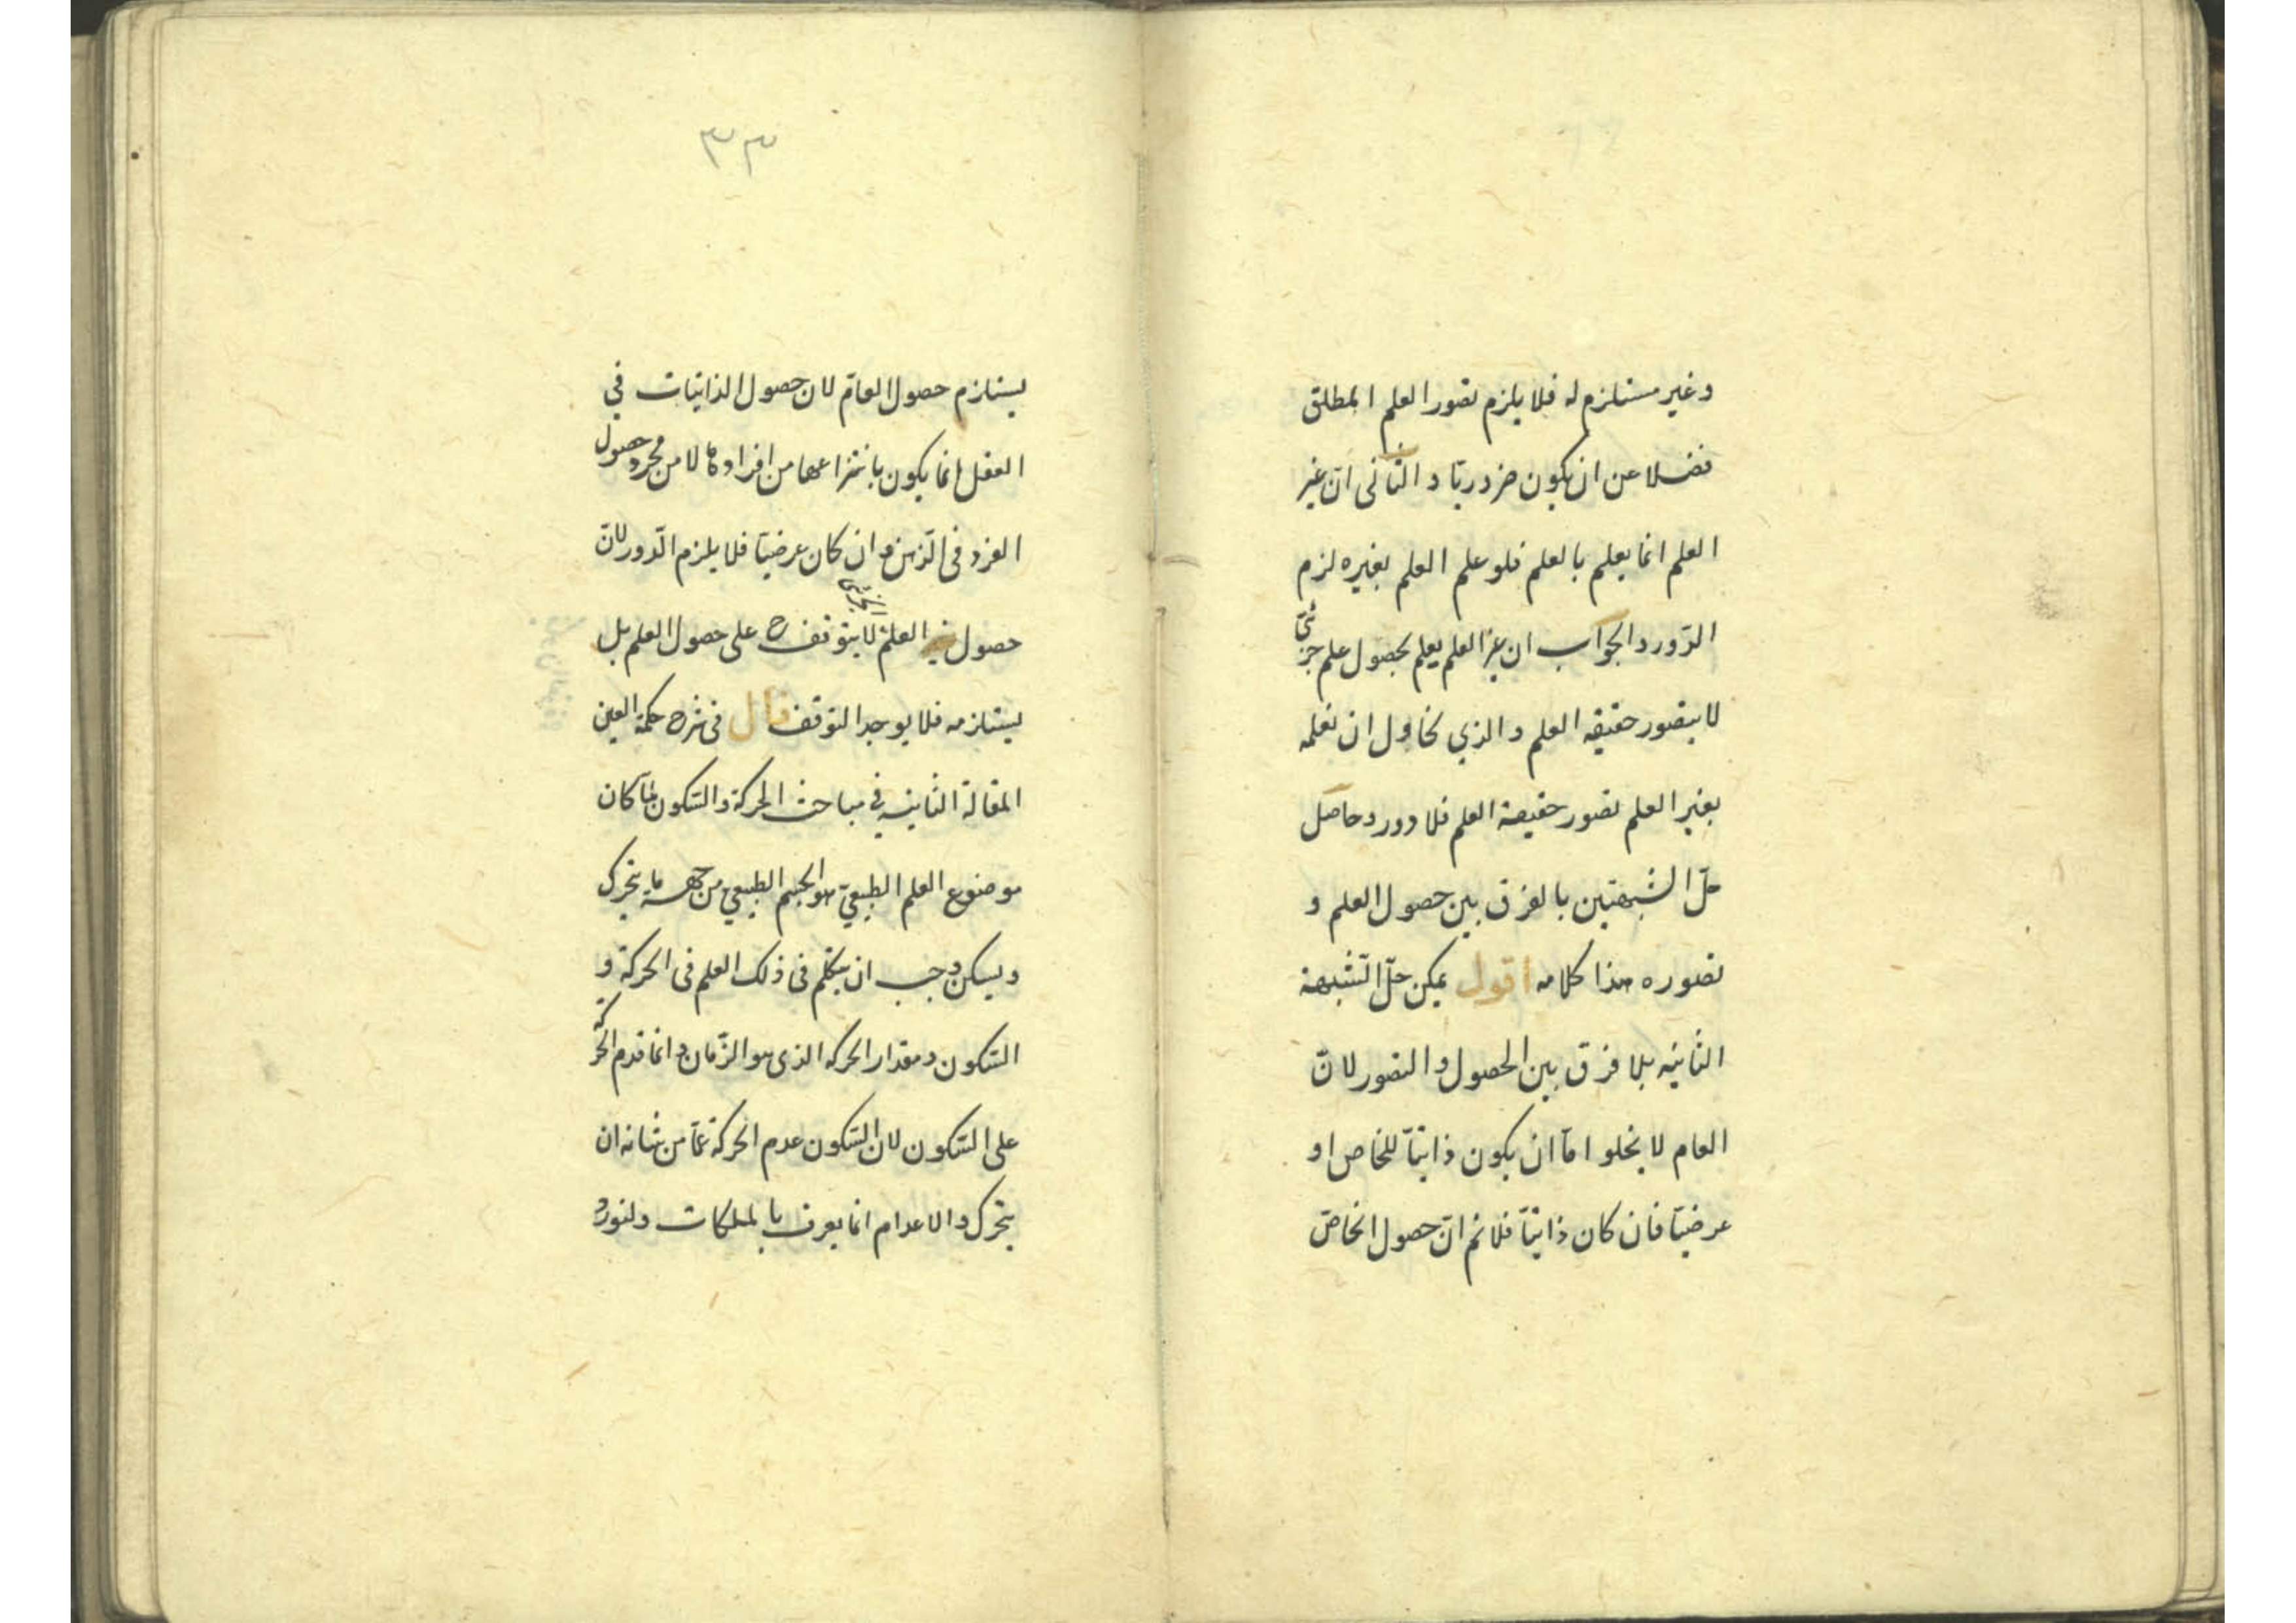 وغير مستلزم له فلا يلزم تصور العلم المطلق
فضلا عن ان يكون ضروريّا والثّانى انّ غير
العلم انما يعلم بالعلم فلو علم العلم بغيره لزم
الدّور والجواب ان غير العلم يعلم بحصول علم جزئىّ
لا بتصور حقيقه العلم والذي نحاول ان نعلمه
بغير العلم تصور حقيقة العلم فلا دور وحاصل
حلّ الشبهتين بالفرق بين حصول العلم و
تصوره هذا كلامه اقول يمكن حلّ الشّبهة
الثانيه بلا فرق بين الحصول والتصور لانّ
العام لا يخلو امّا ان يكون ذاتيّا للخاص او
عرضيّا فان كان ذاتيّا فلا نم انّ حصول الخاصّ
٣٣
يستلزم حصول العامّ لان حصول الذاتيات في
العقل انما يكون بانتزاعها من افرادها لا من مجرد حصول
الفرد فى الذّهن وان كان عرضيّا فلا يلزم الدّور لانّ
حصول العلم الجزئى لا يتوقف ح على حصول العلم بل
يستلزمه فلا يوجد التوقف قال فى شرح حكمة العين
المقالة الثانيه في مباحث الحركة والسّكون لمّا كان
موضوع العلم الطبيعيّ هو الجسم الطبيعي من جهة ما يتحرك
ويسكن وجب ان يتكلم فى ذلك العلم فى الحركة و
السّكون ومقدار الحركه الذى هو الزّمان وانما قدم الحركة
على السّكون لان السّكون عدم الحركة عمّا من شانه ان
يتحرك والاعدام انما يعرف بالملكات ولنورد